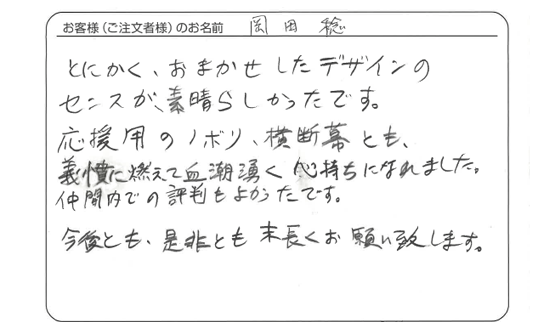 お客様（ご注文者様）のお名前 岡田 稔
とにかく、おまかせしたデザインの
センスが、素晴らしかったです。
応援用のノボリ、横断幕とも、
義憤に燃えて血潮湧く心持ちになれました。
仲間内での評判もよかったです。
今後とも、是非とも末長くお願い致します。